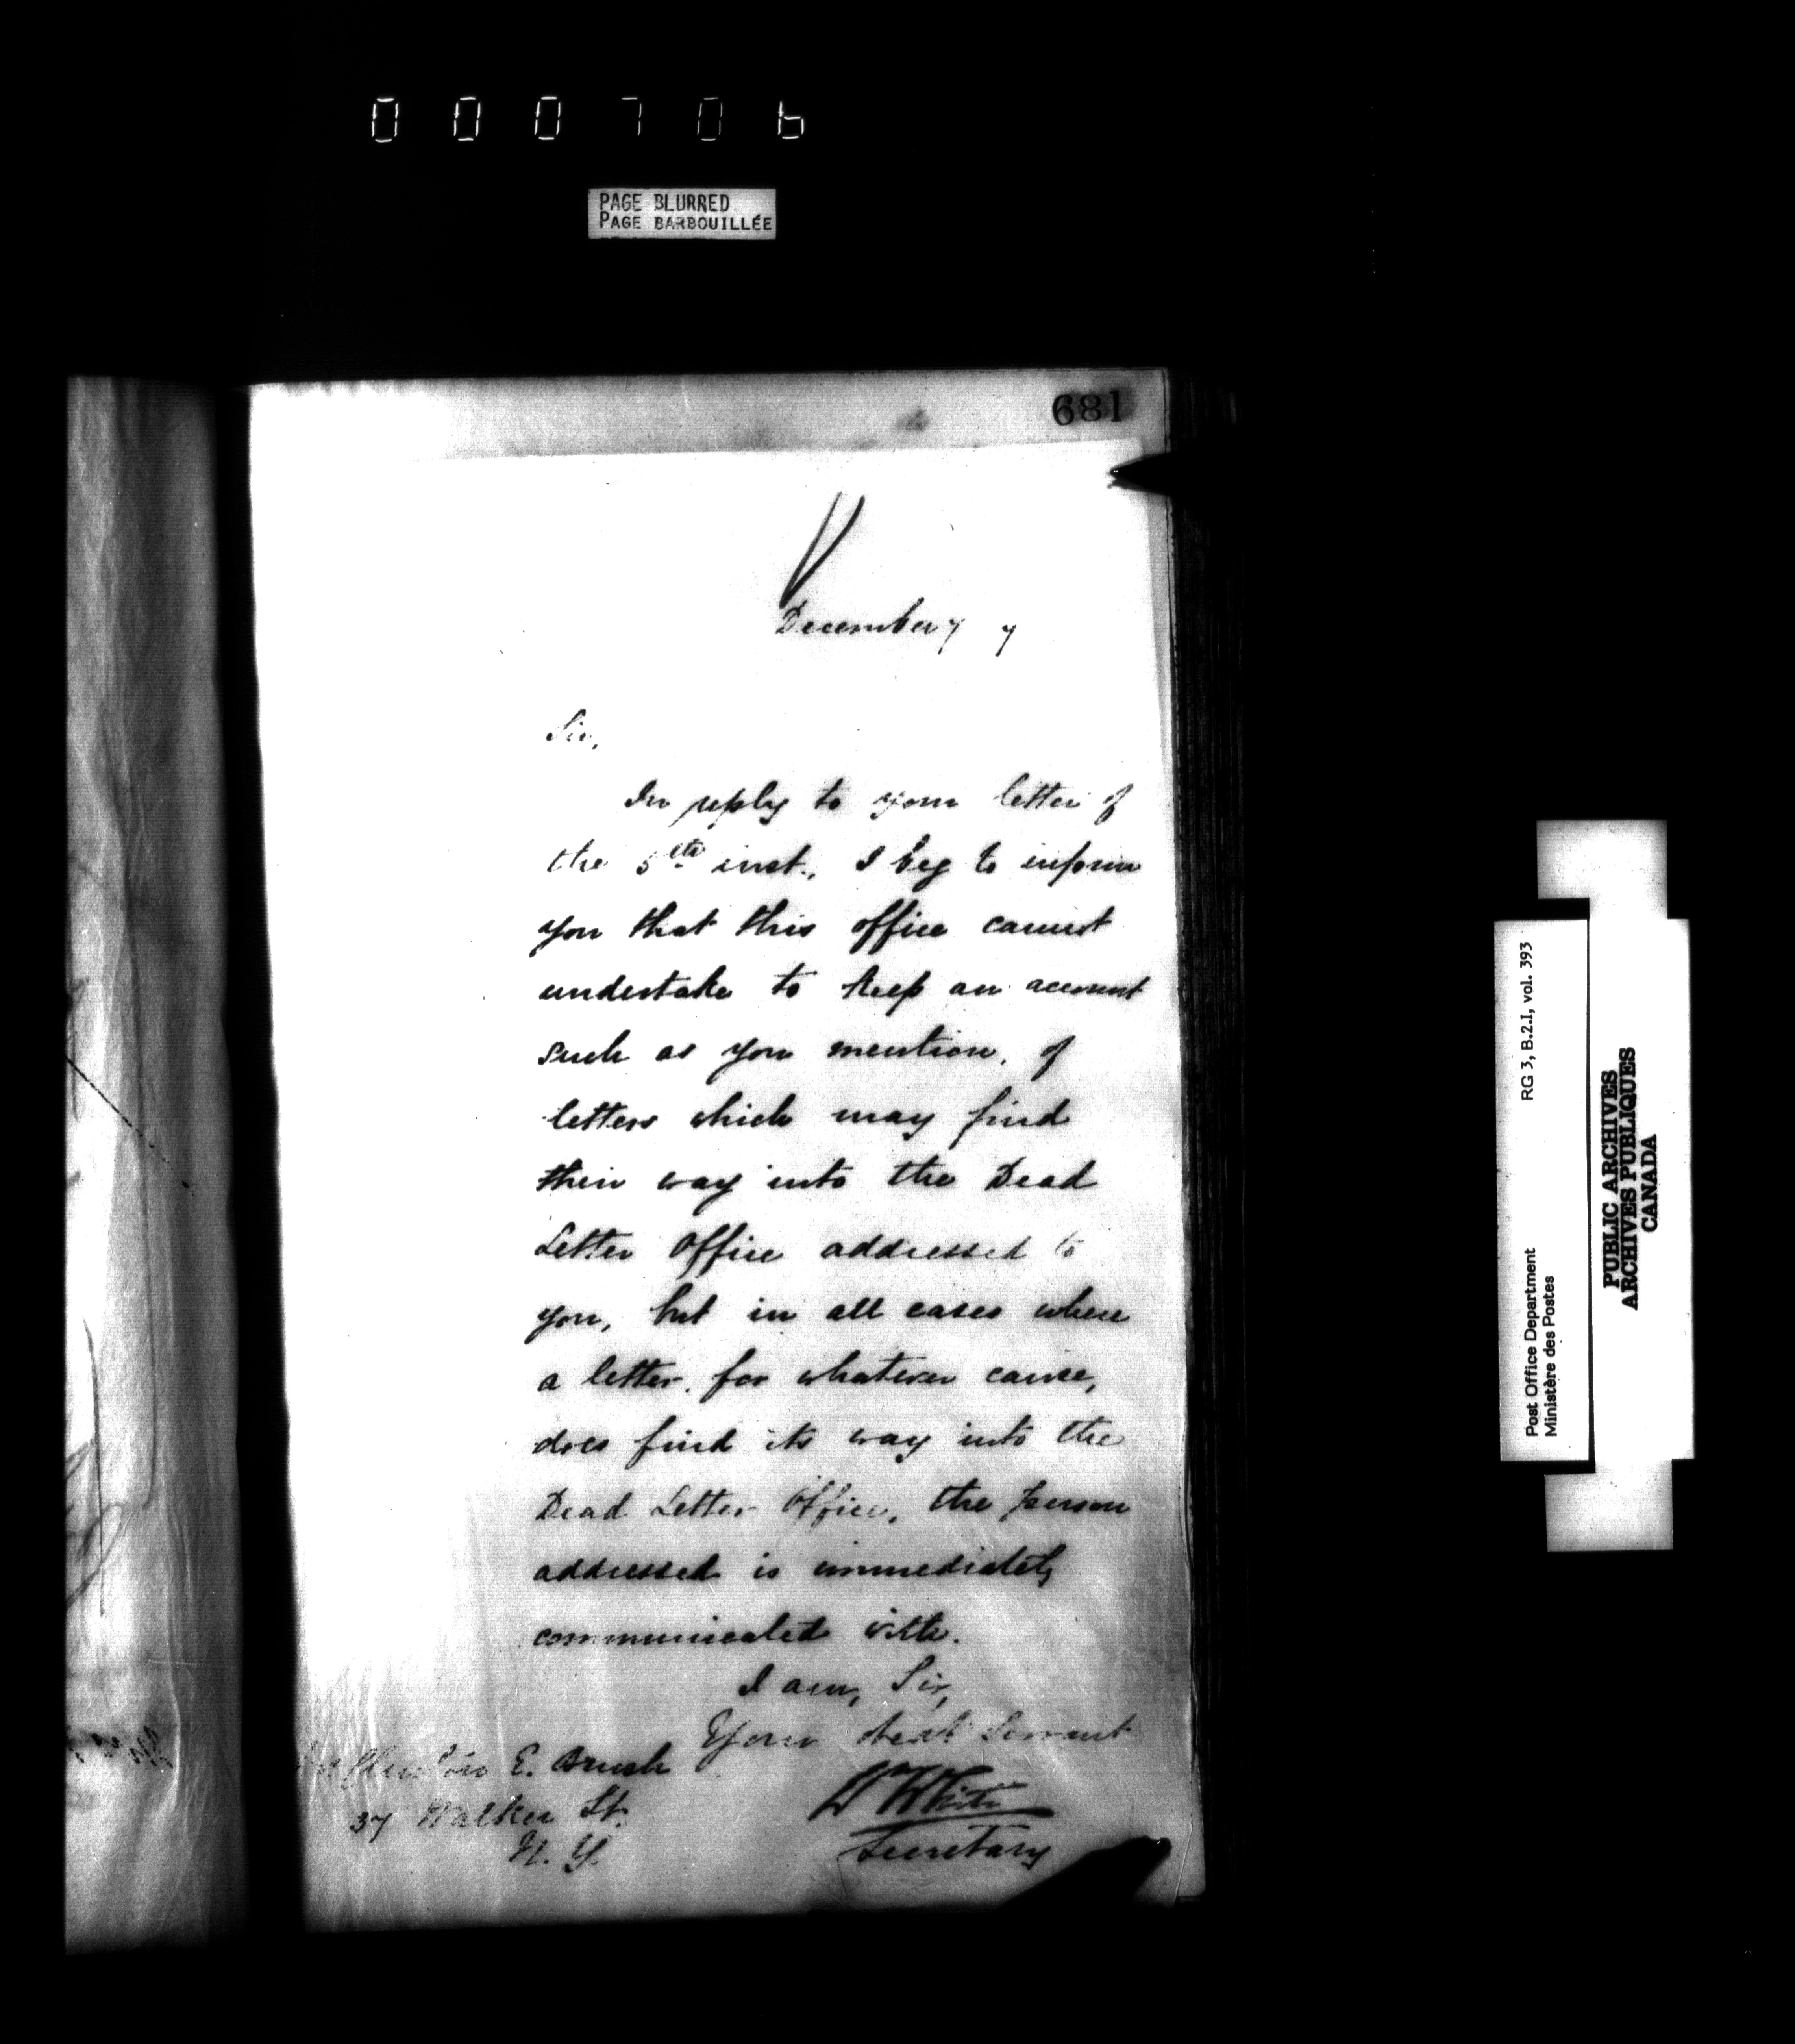 000706
PAGE BLURRED
PAGE BARBOUILLÉE
681
December 7
Sir,
In reply to your letter of
the 5th inst., I beg to inform
you that this office cannot
undertake to keep an account
such as you mention, of
letters which may find
their way into the Dead
Letter Office addressed to
you, but in all cases where
a letter, for whatever cause,
does find its way into the
Dead Letter Office, the person
addressed is immediately
communicated with.
I am, Sir,
Your obedt Servant
W White
Secretary
E. Brush
37 Walker St.
N. Y.
Post Office Department RG 3, B.2.I, vol. 393
Ministère des Postes
PUBLIC ARCHIVES
ARCHIVES PUBLIQUES
CANADA